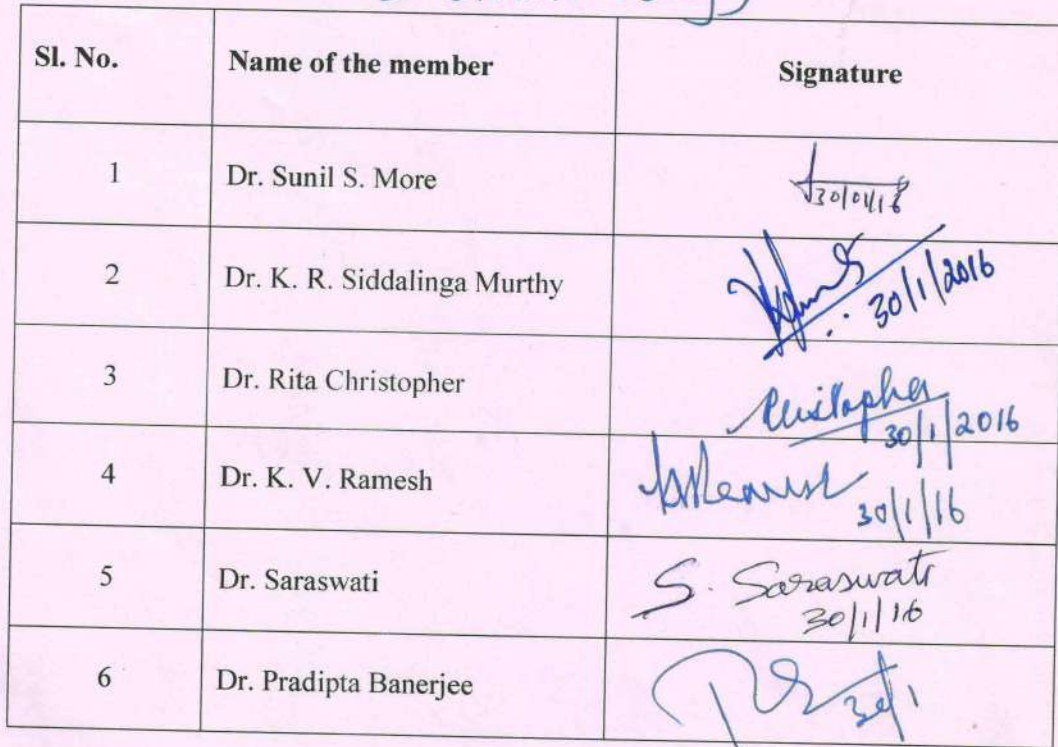 Sl. No. Name of the member Signature
1 Dr. Sunil S. More
30/01/16
2 Dr. K. R. Siddalinga Murthy
30/1/2016
3 Dr. Rita Christopher Christopher
30/1/2016
4 Dr. K. V. Ramesh
30/1/16
5 Dr. Saraswati S. Saraswati
30/1/16
6 Dr. Pradipta Banerjee
30/1